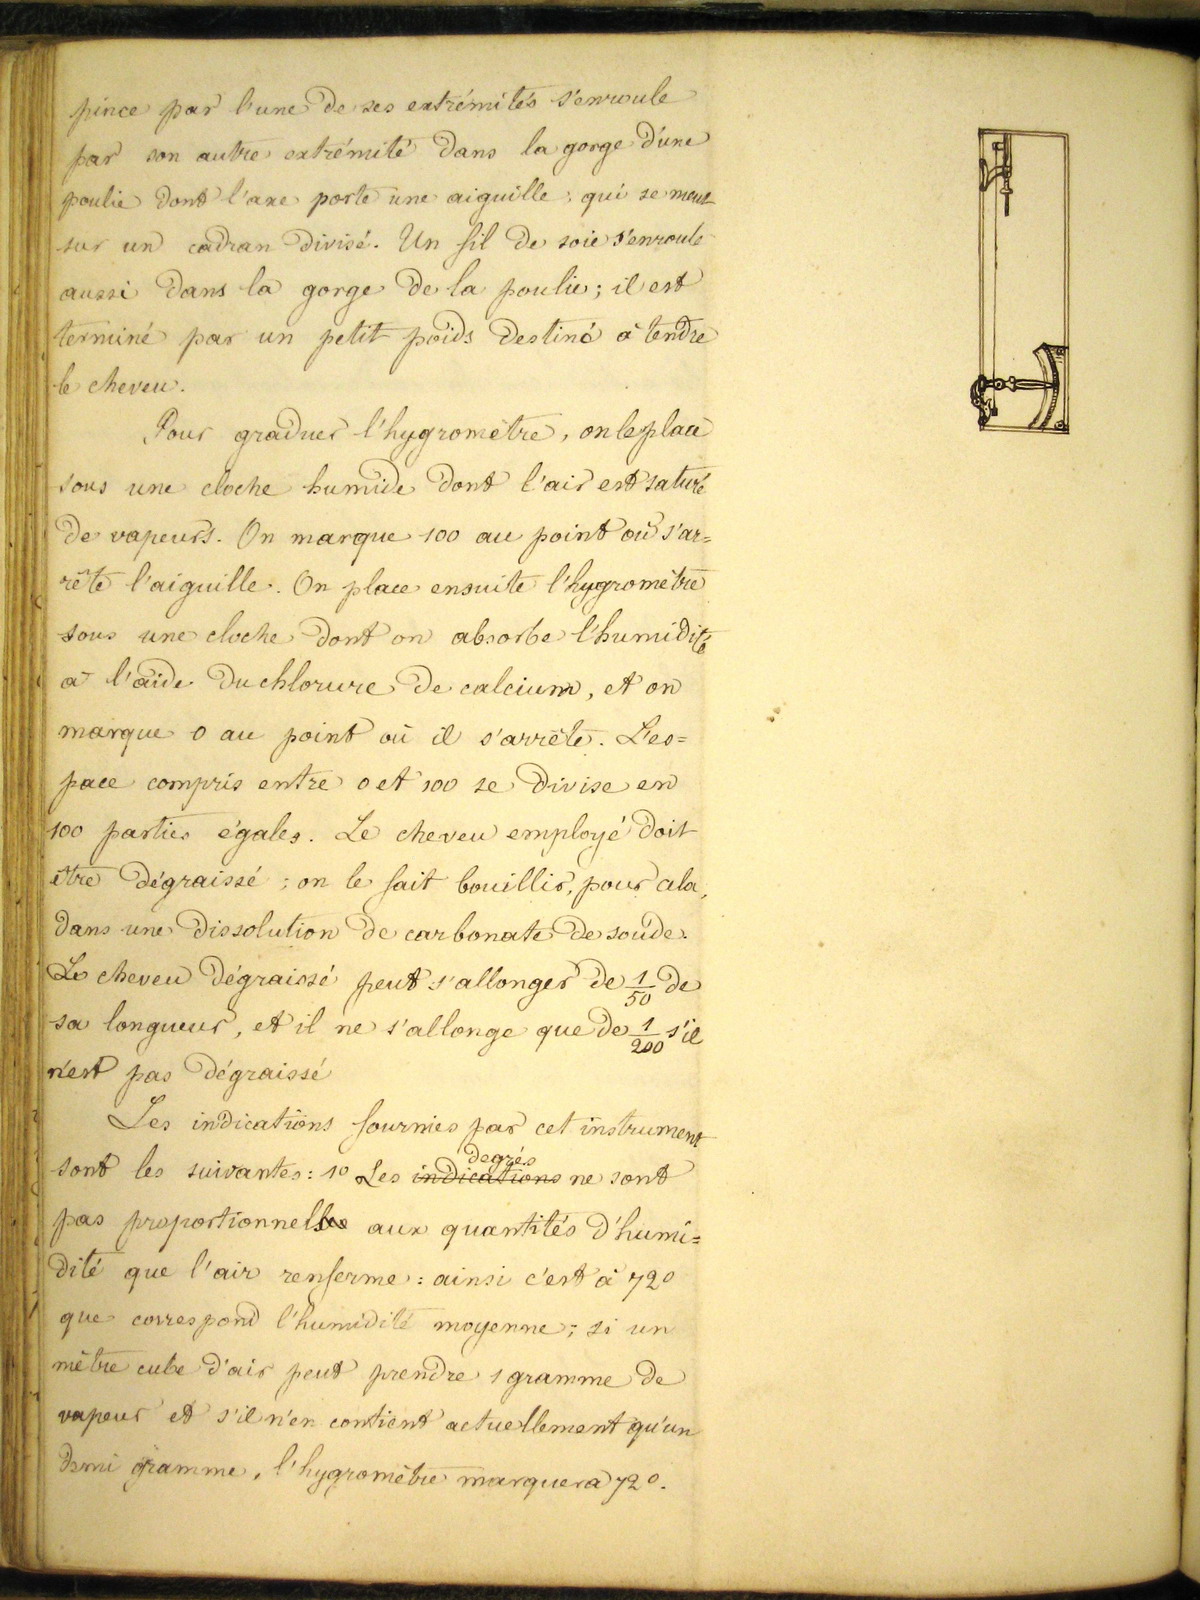 pince par l'une de ses extrémités s'enroule
par son autre extrémité dans la gorge d'une
poulie dont l'axe porte une aiguille, qui se meut
sur un cadran divisé. Un fil de soie s'enroule
aussi dans la gorge de la poulie; il est
terminé par un petit poids destiné à tendre
le cheveu.
Pour graduer l'hygromètre, on le place
sous une cloche humide dont l'air est saturé
de vapeurs. On marque 100 au point où s'ar=
rête l'aiguille. On place ensuite l'hygromètre
sous une cloche dont on absorbe l'humidité
à l'aide du chlorure de calcium, et on
marque 0 au point où il s'arrête. L'es=
pace compris entre 0 et 100 se divise en
100 parties égales. Le cheveu employé doit
être dégraissé; on le fait bouillir, pour cela,
dans une dissolution de carbonate de soude.
Le cheveu dégraissé peut s'allonger de 1/50 de
sa longueur, et il ne s'allonge que de 1/200 s'il
n'est pas dégraissé
Les indications fournies par cet instrument
degrés
sont les suivantes: 1º Les indications ne sont
pas proportionnelles aux quantités d'humi=
dité que l'air renferme: ainsi c'est à 72º
que correspond l'humidité moyenne; si un
mètre cube d'air peut prendre 1 gramme de
vapeur et s'il n'en contient actuellement qu'un
demi gramme, l'hygromètre marquera 72º.